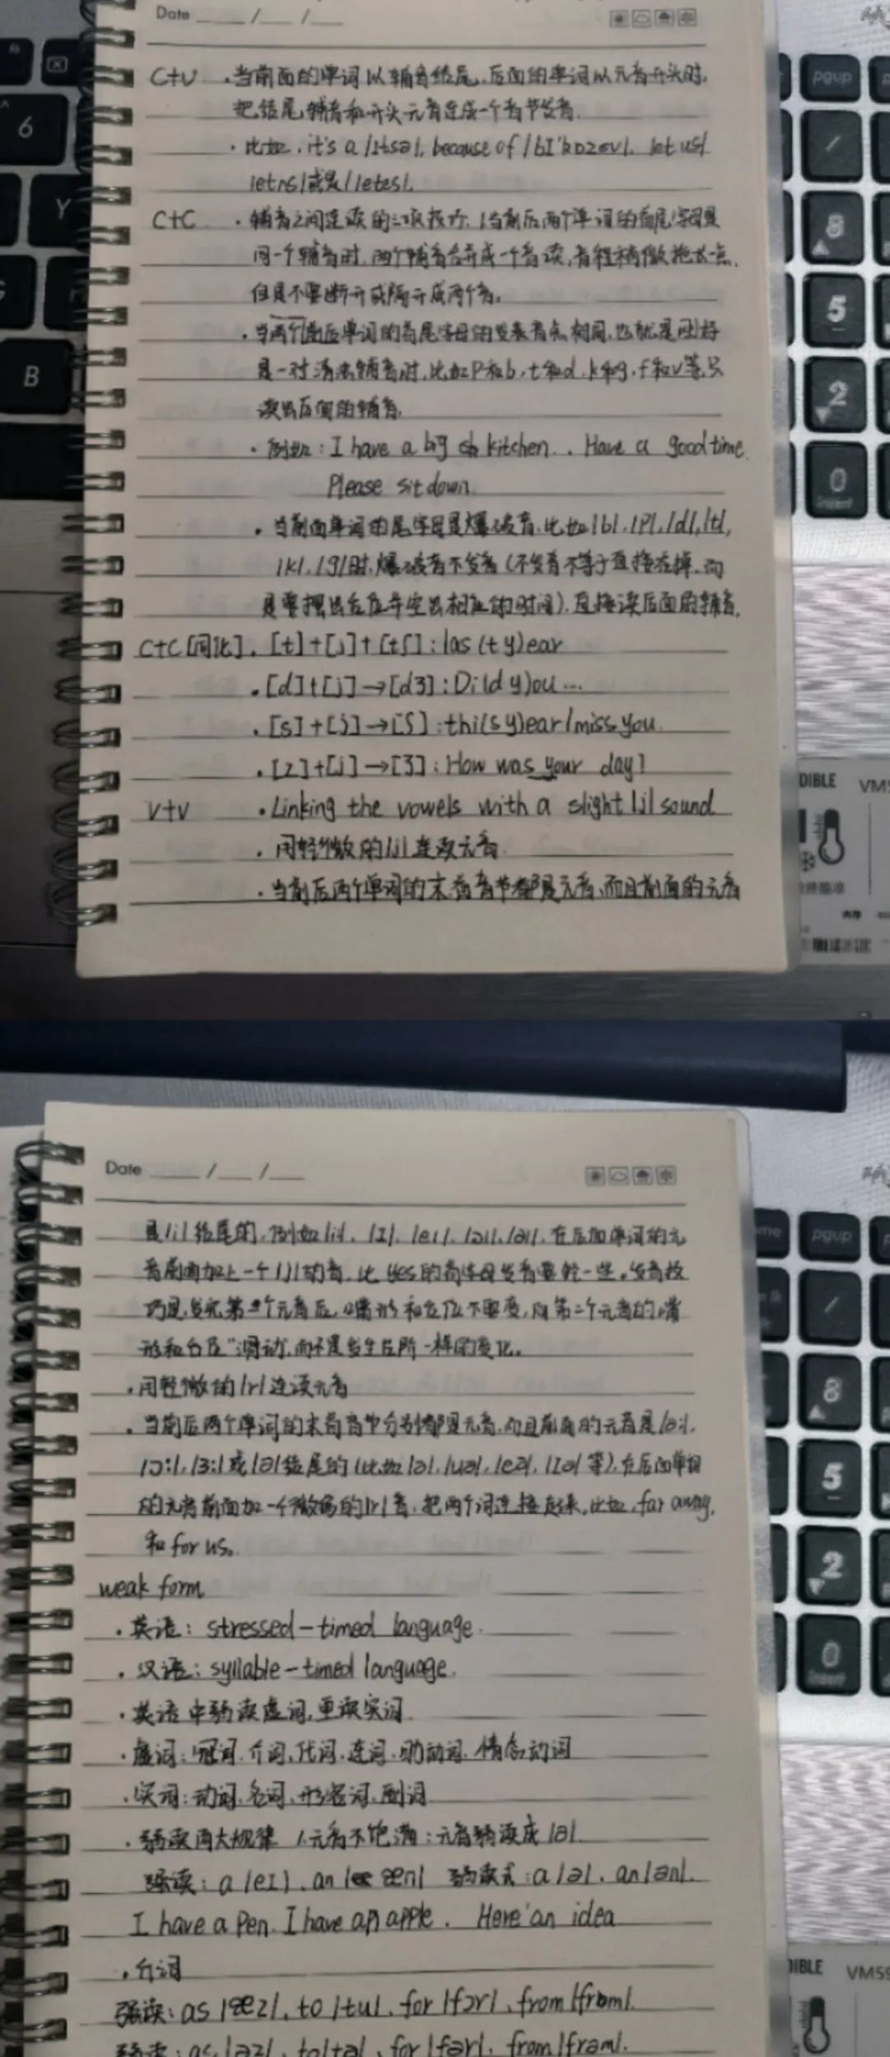 Date / /
C+V ·当前面的单词以辅音结尾,后面的单词以元音开头时,
把结尾辅音和开头元音连成一个音节发音.
·比如, it's a /ɪtsə/, because of /bɪ'kɒzəv/, let us/
letəs/或是/letəs/.
C+C ·辅音之间连读的三项技巧, 1当前后两个单词的首尾字母是
同一个辅音时,两个辅音合并成一个音读,音程稍微拖长一点,
但是不要断开或隔开成两个音。
·当两个前后单词的首尾字母的发音音点相同,也就是刚好
是一对清浊辅音时,比如p和b,t和d,k和g,f和v等,只
读出后面的辅音.
·例如: I have a big kitchen.. Have a good time.
Please sit down.
·当前面单词的尾字母是爆破音,比如/b/,/p/,/d/,/t/,
/k/,/g/时,爆破音不发音(不发音不等于直接省掉,而
是要摆出台位并空出相应的时间),直接读后面的辅音.
C+C[同化]. [t]+[j]+[tʃ]: las(t y)ear
·[d]+[j]→[dʒ]: Di(d y)ou...
·[s]+[j]→[ʃ]: thi(s y)ear/miss you.
·[z]+[j]→[ʒ]: How was your day?
V+V ·Linking the vowels with a slight /j/ sound
·用轻微的/j/连读元音.
·当前后两个单词的末首音节都是元音,而且前面的元音
6
Y
B
pgup
/
8
5
2
0
Insert
DIBLE VM5
Date / /
是/i/结尾的,例如/i/, /ɪ/, /eɪ/, /aɪ/, /ɔɪ/, 在后面单词的元
音前面加上一个/j/的音,比yes的首字母发音要轻一些。发音技
巧是,发完第一个元音后,嘴形和台位不要变,向第二个元音的嘴
形和台位"滑动",而不是发生在所一样的变化。
·用轻微的/r/连读元音
·当前后两个单词的末首音节分别都是元音,而且前面的元音是/ɑ:/,
/ɔ:/,/ɜ:/或/ə/结尾的(比如/ə/,/uə/,/eə/,/ɪə/等),在后面单词
的元音前面加一个微弱的/r/音,把两个词连接起来,比如, far away,
和for us。
weak form
·英语: stressed-timed language.
·汉语: syllable-timed language.
·英语中弱读虚词,重读实词.
·虚词:冠词,介词,代词,连词,助动词,情态动词
·实词:动词,名词,形容词,副词
·弱读两大规律 1.元音不饱满:元音弱读成/ə/.
强读: a /eɪ/, an /æn/ 弱读式: a /ə/, an /ən/.
I have a pen. I have an apple. Here an idea
·介词
强读: as /æz/, to /tu/, for /fɔr/, from /frɒm/.
弱读: as /əz/, to /tə/, for /fər/, from /frəm/.
me
pgup
/
8
5
2
0
Insert
DIBLE VM59